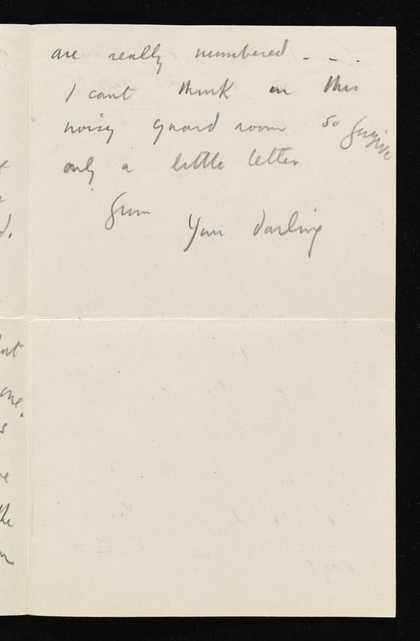 are really numbered . . .
I cant think in this
noisy guard room so forgive
only a little letter
from
Your darling